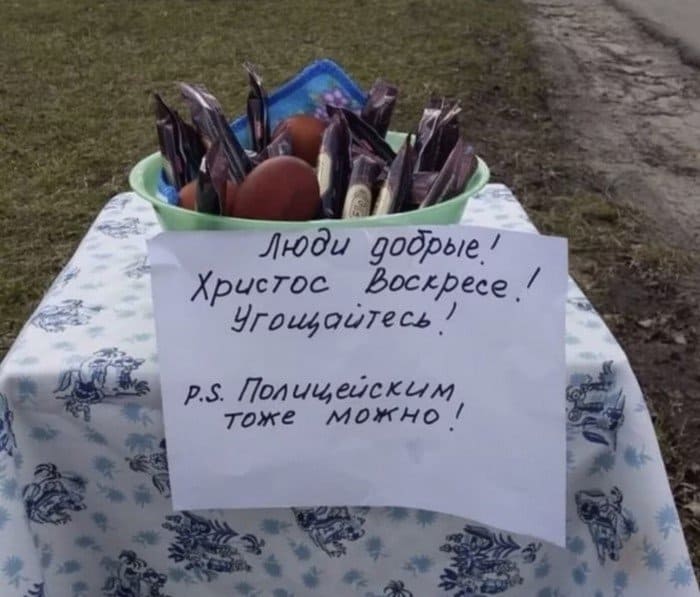 Люди добрые!
Христос Воскресе!
Угощайтесь!
P.S. Полицейским
тоже можно!